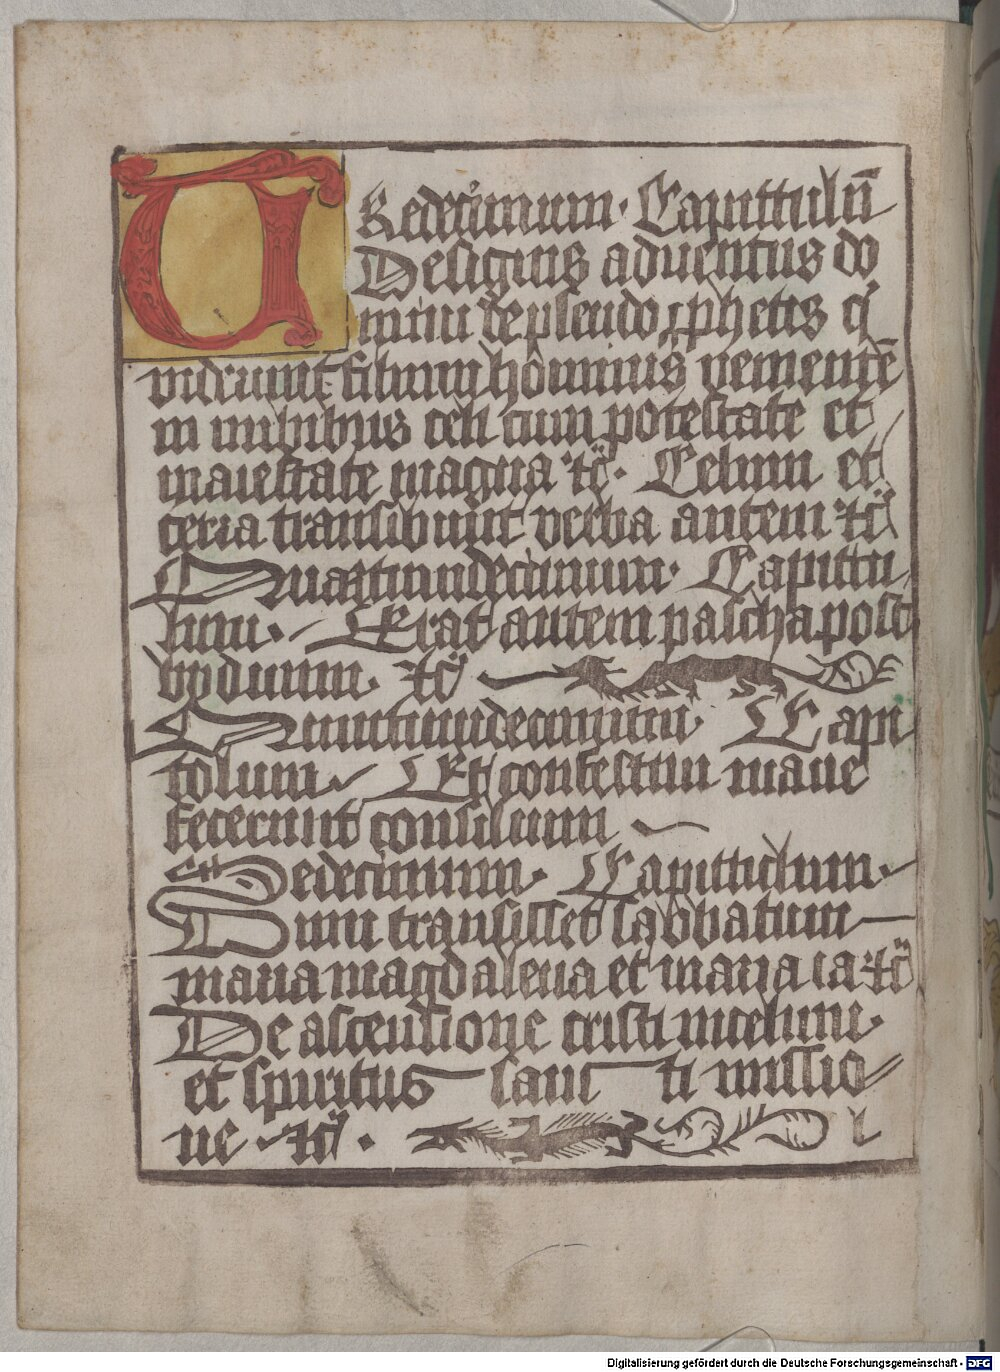 TRedecimum. Capittulū
De signis aduentus do
mini de pseudo pphetis q̄
viderunt filium hominis venientē
in nubibus celi cum potestate et
maiestate magna ⁊c̄. Celum et
terra transibunt verba autem ⁊c̄
Quartumdecimum. Capittu
lum. Erat autem pascha post
byduum ⁊c̄
Quintumdecimum Capi
tolum Et confestim mane
fecerunt consilium
Sedecimum. Capittulum.
Dum transisset sabbatum
maria magdalena et maria ia ⁊c̄
De ascensione cristi in celum.
et spiritus sanc ti missio
ne ⁊c̄.
Digitalisierung gefördert durch die Deutsche Forschungsgemeinschaft - DFG